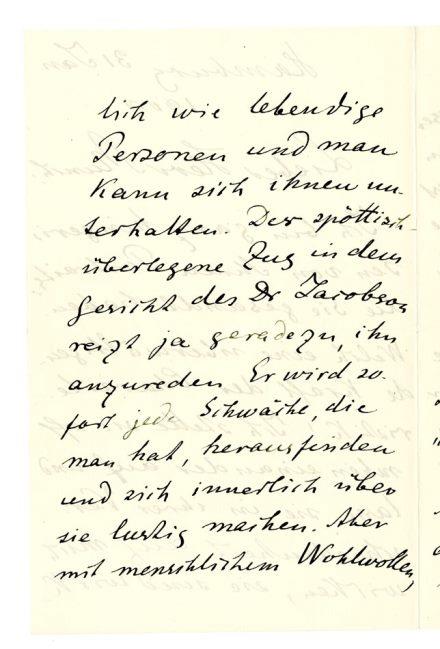 lich wie lebendige
Personen und man
kann sich ihnen un-
terhalten. Der spöttisch
überlegene Zug in dem
Gesicht des Dr Jacobson
reizt ja geradezu, ihn
anzureden. Er wird so-
fort jede Schwäche, die
man hat, herausfinden
und sich innerlich über
sie lustig machen. Aber
mit menschlichem Wohlwollen,